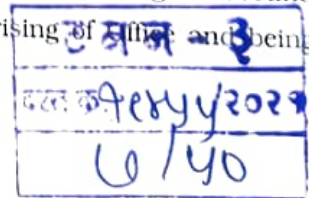 rising of office and being
ट न न - ३
दस्त क्र. १८५५/२०२१
७/५०